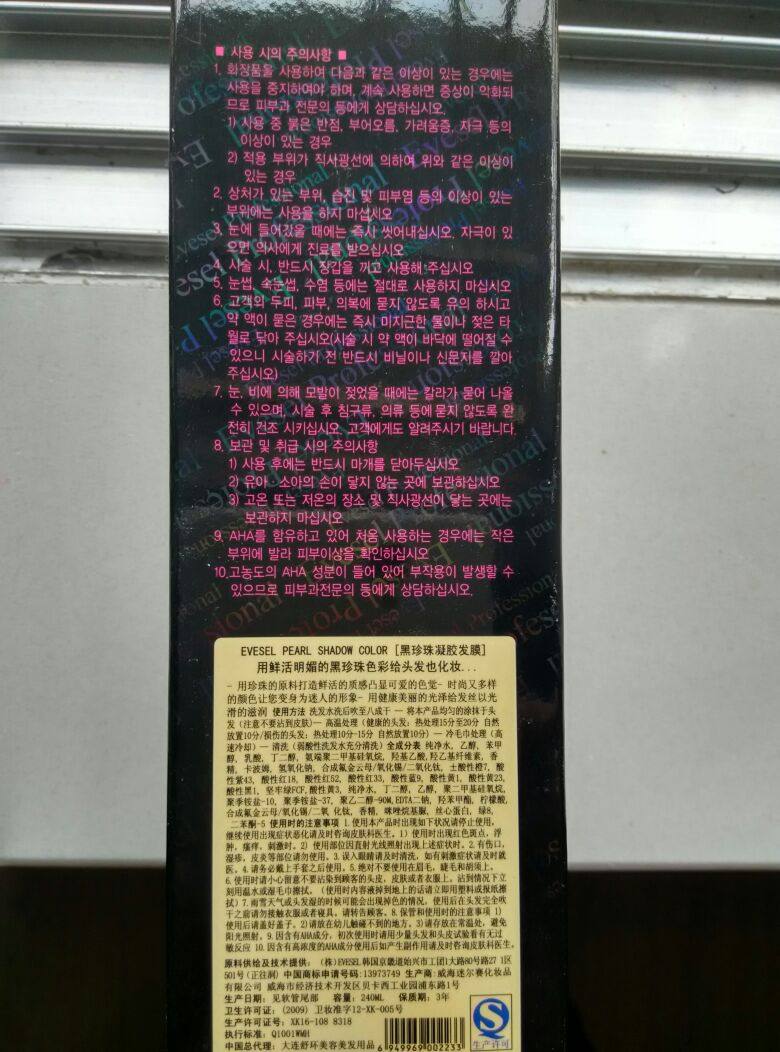 ■ 사용 시의 주의사항 ■
1. 화장품을 사용하여 다음과 같은 이상이 있는 경우에는
사용을 중지하여야 하며, 계속 사용하면 증상이 악화되
므로 피부과 전문의 등에게 상담하십시오.
1) 사용 중 붉은 반점, 부어오름, 가려움증, 자극 등의
이상이 있는 경우
2) 적용 부위가 직사광선에 의하여 위와 같은 이상이
있는 경우
2. 상처가 있는 부위, 습진 및 피부염 등의 이상이 있는
부위에는 사용을 하지 마십시오
3. 눈에 들어갔을 때에는 즉시 씻어내십시오. 자극이 있
으면 의사에게 진료를 받으십시오
4. 시술 시, 반드시 장갑을 끼고 사용해 주십시오
5. 눈썹, 속눈썹, 수염 등에는 절대로 사용하지 마십시오
6. 고객의 두피, 피부, 의복에 묻지 않도록 유의 하시고
약 액이 묻은 경우에는 즉시 미지근한 물이나 젖은 타
월로 닦아 주십시오(시술 시 약 액이 바닥에 떨어질 수
있으니 시술하기 전 반드시 비닐이나 신문지를 깔아
주십시오)
7. 눈, 비에 의해 모발이 젖었을 때에는 칼라가 묻어 나올
수 있으며, 시술 후 침구류, 의류 등에 묻지 않도록 완
전히 건조 시키십시오. 고객에게도 알려주시기 바랍니다.
8. 보관 및 취급 시의 주의사항
1) 사용 후에는 반드시 마개를 닫아두십시오
2) 유아 · 소아의 손이 닿지 않는 곳에 보관하십시오
3) 고온 또는 저온의 장소 및 직사광선이 닿는 곳에는
보관하지 마십시오
9. AHA를 함유하고 있어 처음 사용하는 경우에는 작은
부위에 발라 피부이상을 확인하십시오
10. 고농도의 AHA 성분이 들어 있어 부작용이 발생할 수
있으므로 피부과전문의 등에게 상담하십시오.
EVESEL PEARL SHADOW COLOR [黑珍珠凝胶发膜]
用鲜活明媚的黑珍珠色彩给头发也化妆...
- 用珍珠的原料打造鲜活的质感凸显可爱的色觉- 时尚又多样
的颜色让您变身为迷人的形象- 用健康美丽的光泽给发丝以光
滑的滋润 使用方法 洗发水洗后吹至八成干 — 将本产品均匀的涂抹于头
发 (注意不要沾到皮肤)— 高温处理 (健康的头发: 热处理15分至20分 自然
放置10分/损伤的头发: 热处理10分-15分 自然放置10分) — 冷毛巾处理 (高
速冷却) — 清洗 (弱酸性洗发水充分清洗) 全成分表 纯净水, 乙醇, 苯甲
醇, 乳酸, 丁二醇, 氨端聚二甲基硅氧烷, 羟基乙酸,羟乙基纤维素, 香
精, 卡波姆, 氢氧化钠, 合成氟金云母/氧化锡/二氧化钛, 士酸性橙7, 酸
性紫43, 酸性红18, 酸性红52, 酸性红33, 酸性蓝9, 酸性黄1, 酸性黄23,
酸性黑1, 坚牢绿FCF,酸性黄3, 纯净水, 丁二醇, 乙醇, 聚二甲基硅氧烷,
聚季铵盐-10, 聚季铵盐-37, 聚乙二醇-90M,EDTA二钠, 羟苯甲酯, 柠檬酸,
合成氟金云母/氧化锡/二氧 化钛, 香精, 咪唑烷基脲, 丝心蛋白, 绿8,
二苯酮-5 使用时的注意事项 1.使用本产品时出现如下状况请停止使用,
继续使用出现症状恶化请及时咨询皮肤科医生。1) 使用时出现红色斑点, 浮
肿, 瘙痒, 刺激时。2) 使用部位因直射光线照射出现上述症状时。2.有伤口,
湿疹, 皮炎等部位请勿使用。3.误入眼睛请及时清洗, 如有刺激症状请及时就
医。4.请务必戴上手套之后使用。5.绝对不要使用在眉毛, 睫毛和胡须上。
6.使用时请小心留意不要沾染到顾客的头皮, 皮肤或者衣服上。沾到情况下立
刻用温水或湿毛巾擦拭。(使用时内容液掉到地上的话请立即用塑料或报纸擦
拭) 7.雨雪天气或头发湿的时候可能会出现掉色的情况, 使用后在头发完全吹
干之前请勿接触衣服或者寝具。请转告顾客。8.保管和使用时的注意事项 1)
使用后请盖好盖子。2)请放在幼儿触碰不到的地方。3)请存放在常温处, 避免
阳光照射。9.因含有AHA成分, 初次使用时请用少量头发和头皮试验看有无过
敏反应 10.因含有高浓度的AHA成分使用后如产生副作用请及时咨询皮肤科医生。
原料供给及技术提供: (株)EVESEL韩国京畿道始兴市工团1大路80号路27 1区
501号(正往洞) 中国商标申请号码:13973749 生产商:威海迷尔赛化妆品
有限公司 威海市经济技术开发区贝卡西工业园浦东路1号
生产日期: 见软管尾部 容量: 240ML 保质期: 3年
卫生许可证: (2009) 卫妆准字12-XK-005号
生产许可证号: XK16-108 8318
执行标准: Q1001WMH
中国总代理: 大连舒环美容美发用品
6 949969 002233
生产许可